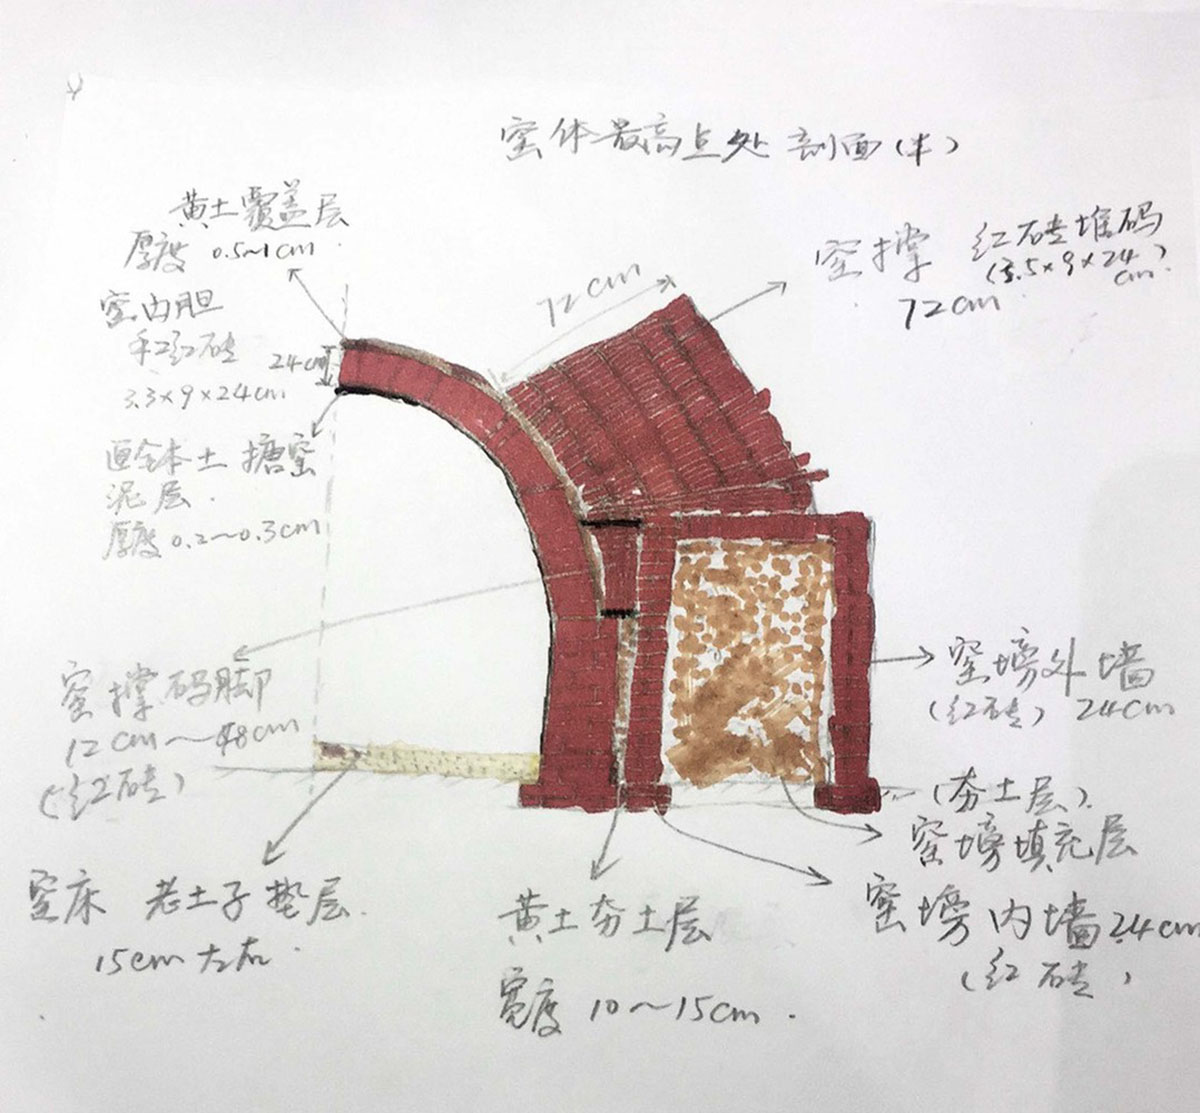 窑体最高点处 剖面(半)
黄土覆盖层
厚度 0.5~1cm
窑内胆
红砖
3.3×9×24cm
24cm
搪窑
泥层
厚度 0.2~0.3cm
72cm
窑撑 红砖堆码
(3.5×9×24cm)
72cm
窑撑码脚
12cm~48cm
(红砖)
窑床 老土子垫层
15cm左右
黄土夯土层
宽度 10~15cm
窑塝外墙
(红砖) 24cm
(夯土层)
窑塝填充层
窑塝内墙 24cm
(红砖)